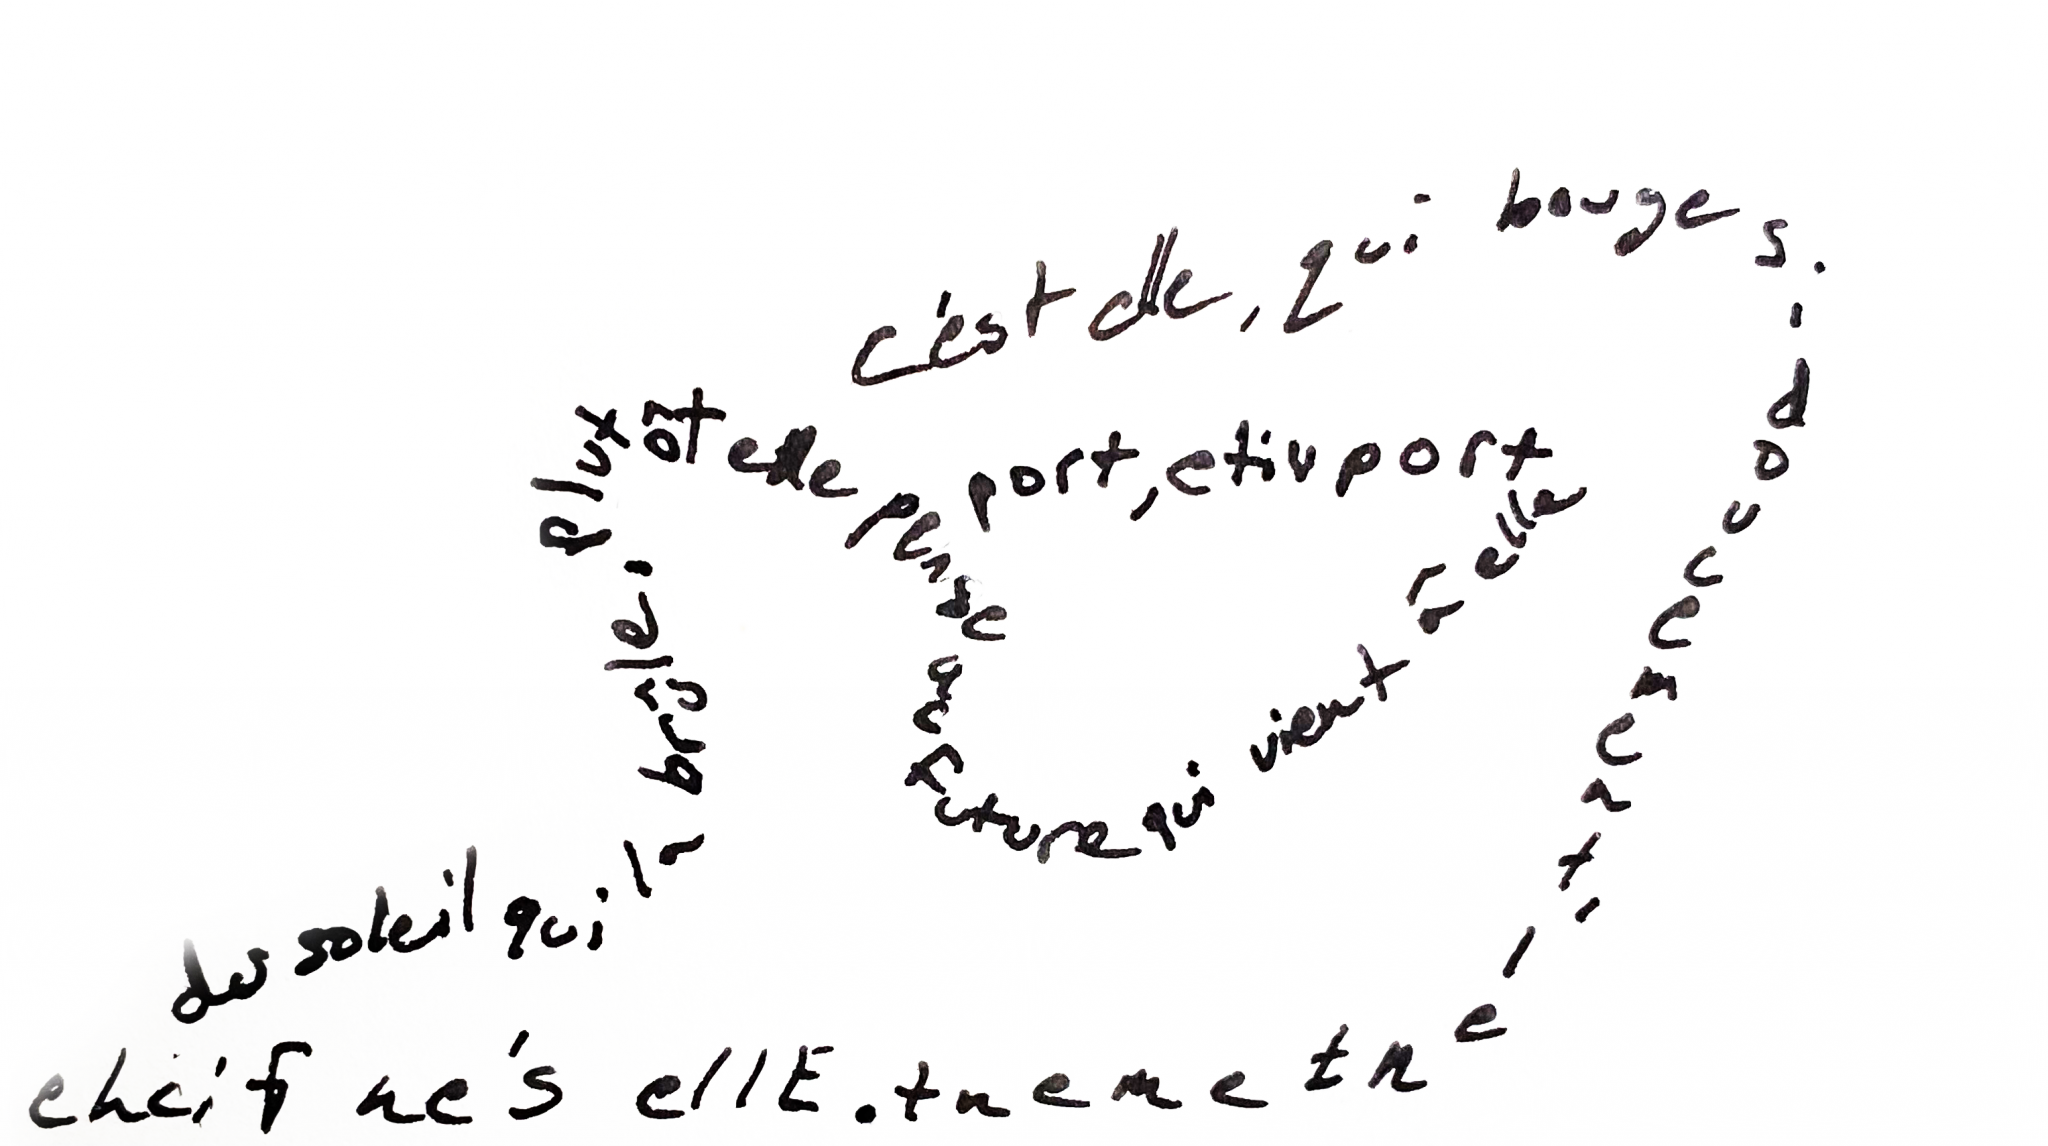 c'est elle, qui bouges.
doucement,
ehcif ne's ellE .tnemetnel
du soleil qui la brûle,
plutôt elle pense au future qui vient à elle
port, etiv port